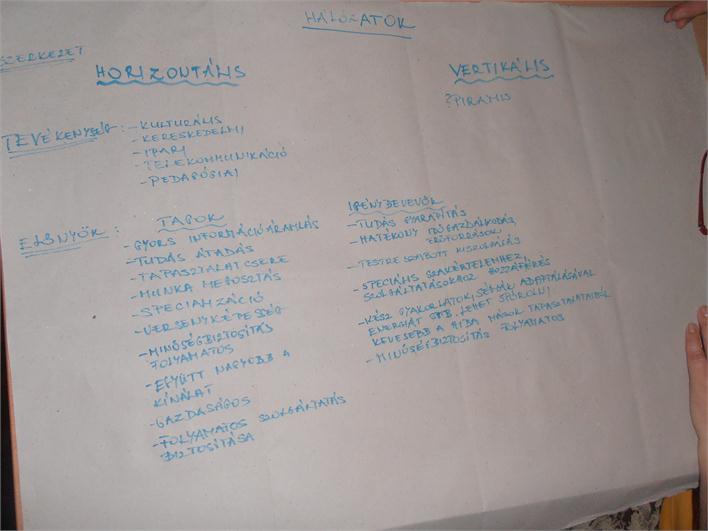 HÁLÓZATOK
SZERKEZET
HORIZONTÁLIS
VERTIKÁLIS
?PIRAMIS
TEVÉKENYSÉG: -KULTURÁLIS
-KERESKEDELMI
-IPARI
-TELEKOMMUNIKÁCIÓ
-PEDAGÓGIAI
ELŐNYÖK:
TAGOK
-GYORS INFORMÁCIÓÁRAMLÁS
-TUDÁS ÁTADÁS
-TAPASZTALATCSERE
-MUNKA MEGOSZTÁS
-SPECIALIZÁCIÓ
-VERSENYKÉPESSÉG
-MINŐSÉGBIZTOSÍTÁS
FOLYAMATOS
-EGYÜTT NAGYOBB A
KÍNÁLAT
-GAZDASÁGOS
-FOLYAMATOS SZOLGÁLTATÁS
BIZTOSÍTÁSA
IGÉNYBEVEVŐK
-TUDÁS GYARAPÍTÁS
-HATÉKONY IDŐGAZDÁLKODÁS,
ERŐFORRÁSOK
-TESTRE SZABOTT KISZOLGÁLÁS
-SPECIÁLIS SZAKÉRTELEMHEZ,
SZOLGÁLTATÁSOKHOZ HOZZÁFÉRÉS
-KÉSZ GYAKORLATOK, SÉMÁK ADAPTÁLÁSÁVAL
ENERGIÁT STB. LEHET SPÓROLNI
KEVESEBB A HIBA MÁSOK TAPASZTALATAIBÓL
-MINŐSÉGBIZTOSÍTÁS FOLYAMATOS